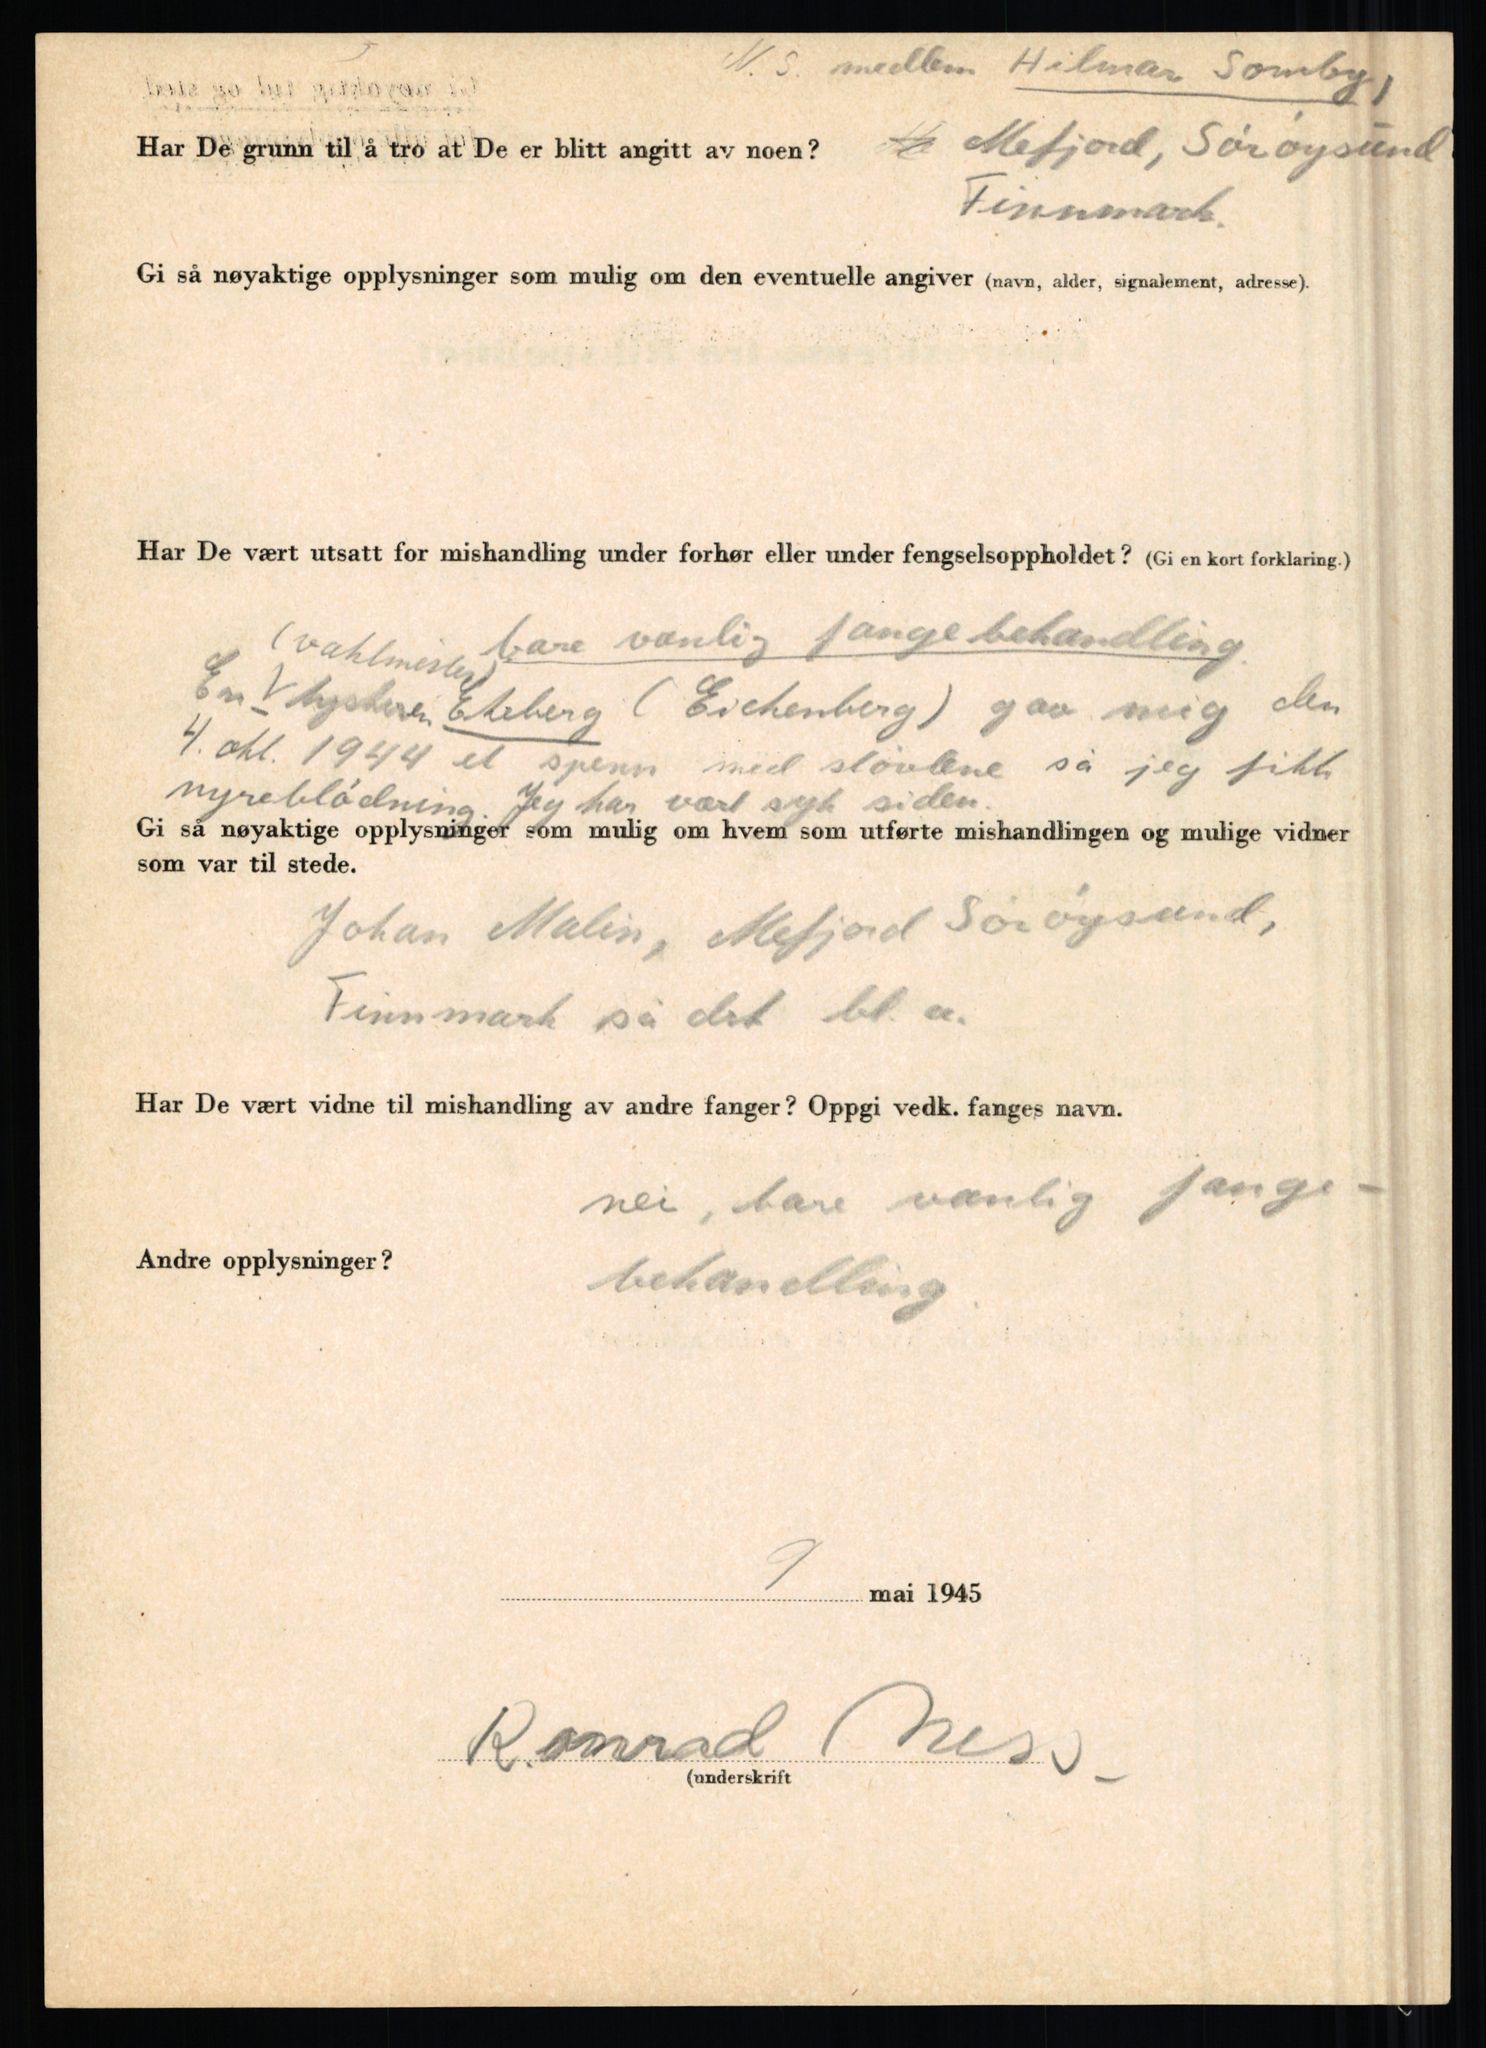 N. S. medlem Hilmar Somby,
Har De grunn til å tro at De er blitt angitt av noen?
Mefjord, Sørøysund
Finnmark.
Gi så nøyaktige opplysninger som mulig om den eventuelle angiver (navn, alder, signalement, adresse).
Har De vært utsatt for mishandling under forhør eller under fengselsoppholdet? (Gi en kort forklaring.)
bare vanlig fangebehandling.
(vahlmister)
En tyskeren Ekeberg (Eichenberg) gav mig den
4. okt. 1944 et spenn med støvlene så jeg fikk
nyreblødning. Jeg har vært syk siden.
Gi så nøyaktige opplysninger som mulig om hvem som utførte mishandlingen og mulige vidner
som var til stede.
Johan Malin, Mefjord Sørøysund,
Finnmark så det bl. a.
Har De vært vidne til mishandling av andre fanger? Oppgi vedk. fanges navn.
nei, bare vanlig fange-
Andre opplysninger?
behandling.
9 mai 1945
Konrad Ness
(underskrift